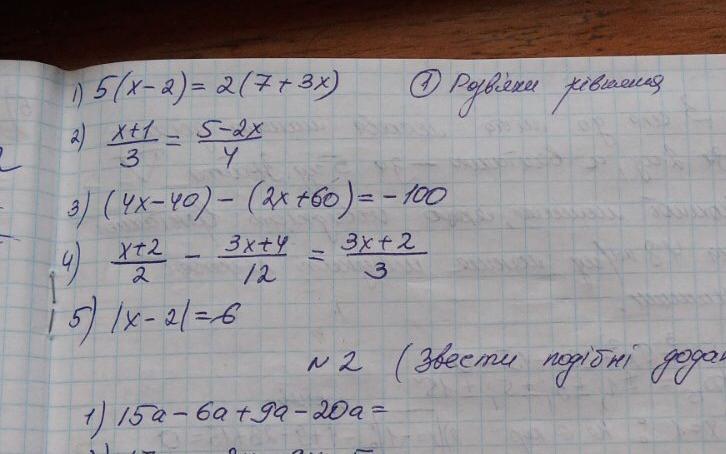 1) 5(x-2) = 2(7+3x) ① Розв'яжи рівняння
2) \frac{x+1}{3} = \frac{5-2x}{4}
3) (4x-40) - (2x+60) = -100
4) \frac{x+2}{2} - \frac{3x+4}{12} = \frac{3x+2}{3}
5) |x-2| = 6
№2 (Звести подібні додан
1) 15a - 6a + 9a - 20a =